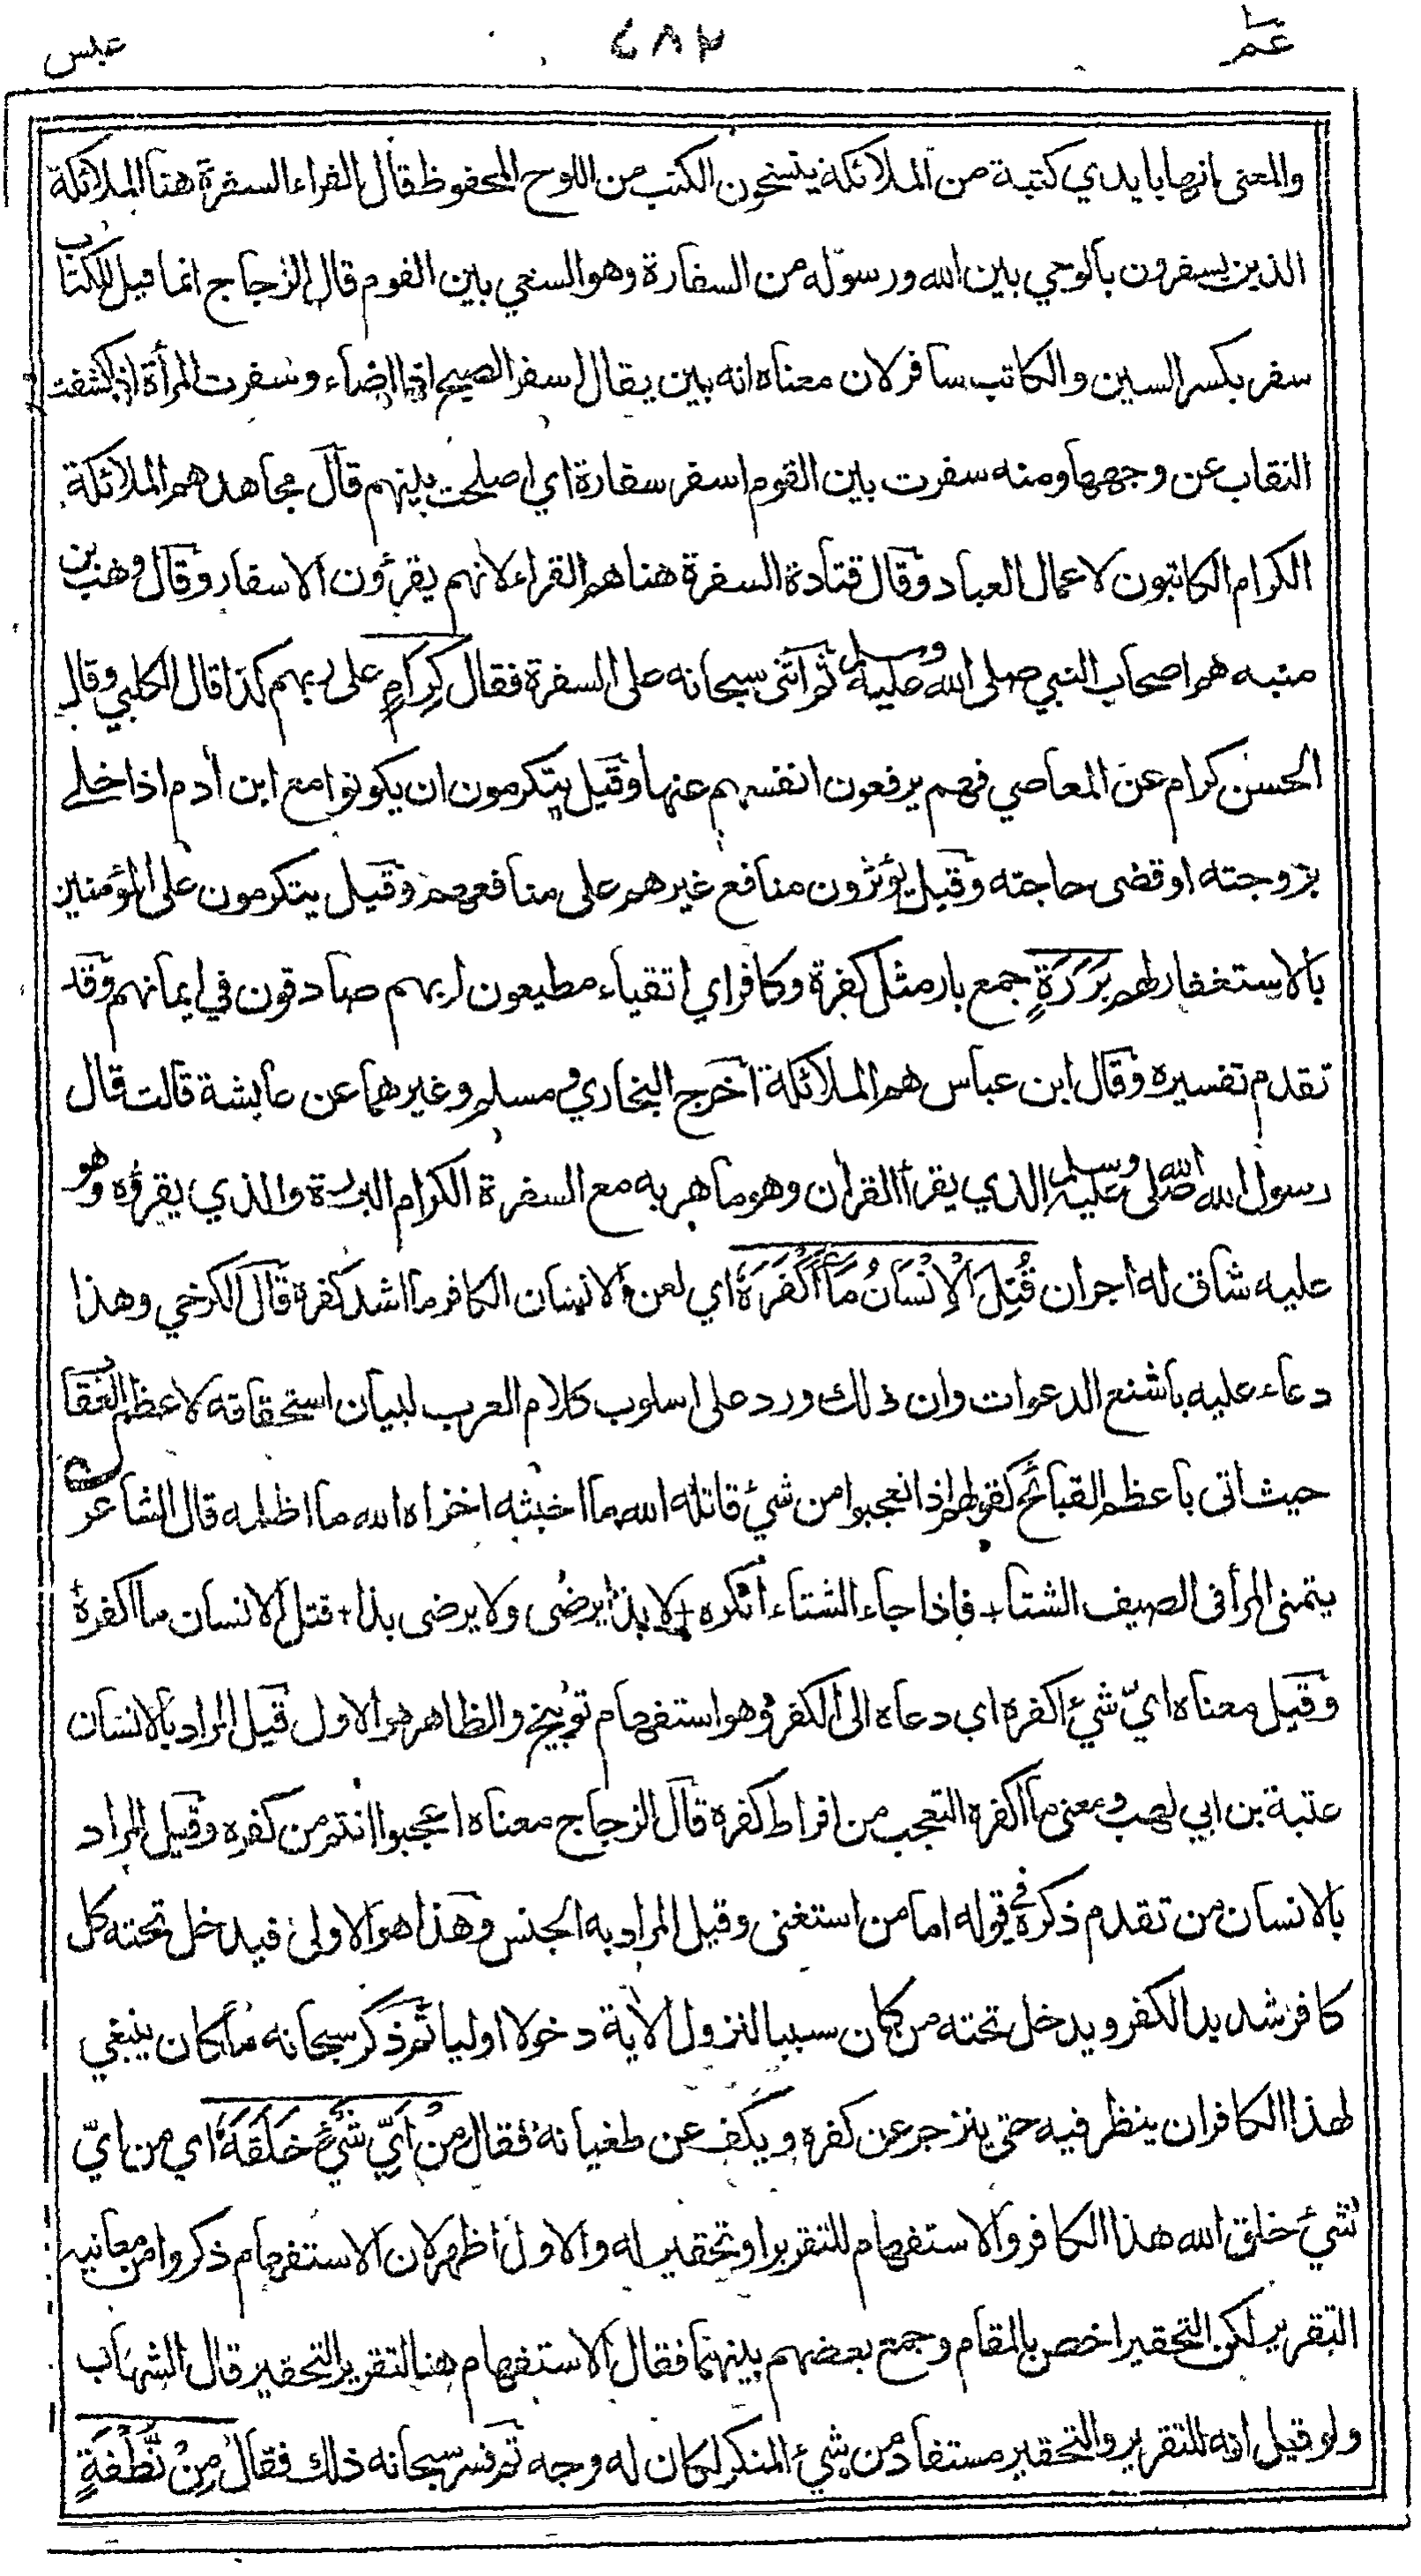 عم ٤٨٢ عبس
والمعنى انها بايدي كتبة من الملائكة ينسخون الكتب من اللوح المحفوظ قال الفراء السفرة هنا الملائكة
الذين يسفرون بالوحي بين الله ورسوله من السفارة وهو السعي بين القوم قال الزجاج انما قيل للكتاب
سفر بكسر السين والكاتب سافر لان معناه انه بين يقال اسفر الصبح اذا اضاء وسفرت المرأة اذا كشفت
النقاب عن وجهها ومنه سفرت بين القوم اسفر سفارة اي اصلحت بينهم قال مجاهد هم الملائكة
الكرام الكاتبون لاعمال العباد وقال قتادة السفرة هنا هم القراء لانهم يقرؤن الاسفار وقال وهب بن
منبه هم اصحاب النبي صلى الله عليه وسلم ثم اثنى سبحانه على السفرة فقال كِرَامٍ على ربهم كذا قال الكلبي وقال
الحسن كرام عن المعاصي فهم يرفعون انفسهم عنها وقيل يتكرمون ان يكونوا مع ابن أدم اذا خلى
بزوجته او قضى حاجته وقيل يؤثرون منافع غيرهم على منافعهم وقيل يتكرمون على المؤمنين
بالاستغفار لهم بَرَرَةٍ جمع بار مثل كفرة وكافر اي اتقياء مطيعون لربهم صادقون في ايمانهم وقد
تقدم تفسيره وقال ابن عباس هم الملائكة اخرج البخاري و مسلم وغيرهما عن عايشة قالت قال
رسول الله صلى الله عليه وسلم الذي يقرأ القرأن وهو ماهر به مع السفرة الكرام البررة والذي يقرؤه وهو
عليه شاق له اجران قُتِلَ الْاِنْسَانُ مَا اَكْفَرَهٗ اي لعن الانسان الكافر ما اشد كفره قال الكرخي وهذا
دعاء عليه باشنع الدعوات وان ذلك ورد على اسلوب كلام العرب لبيان استحقاقه لاعظم العقاب
حيث اتى باعظم القبائح كقولهم اذا تعجبوا من شئ قاتله الله ما اخبثه اخزاه الله ما اظلمه قال الشاعر
يتمنى المرأ في الصيف الشتا + فاذا جاء الشتاء انكره + لا بذا يرضى ولا يرضى بذا + قتل الانسان ما اكفره
وقيل معناه ايّ شئ اكفره اي دعاه الى الكفر وهو استفهام توبيخ والظاهر هو الاول قيل المراد بالانسان
عتبة بن ابي لهب ومعنى ما اكفره التعجب من افراط كفره قال الزجاج معناه اعجبوا انتم من كفره وقيل المراد
بالانسان من تقدم ذكره في قوله اما من استغنى وقيل المراد به الجنس وهذا هو الاولى فيدخل تحته كل
كافر شديد الكفر ويدخل تحته من كان سببا لنزول الاية دخولا اوليا ثم ذكر سبحانه ما كان ينبغي
لهذا الكافر ان ينظر فيه حتى ينزجر عن كفره ويكف عن طغيانه فقال مِنْ اَيِّ شَيْءٍ خَلَقَهٗ اي من ايّ
شئ خلق الله هذا الكافر والاستفهام للتقرير او تحقير له والاول اظهر لان الاستفهام ذكروا من معانيه
التقرير لكن التحقير اخص بالمقام وجمع بعضهم بينهما فقال الاستفهام هنا لتقرير التحقير قال الشهاب
ولو قيل انه للتقرير والتحقير مستفاد من شئ المنكر لكان له وجه ثم فسر سبحانه ذلك فقال مِنْ نُّطْفَةٍ